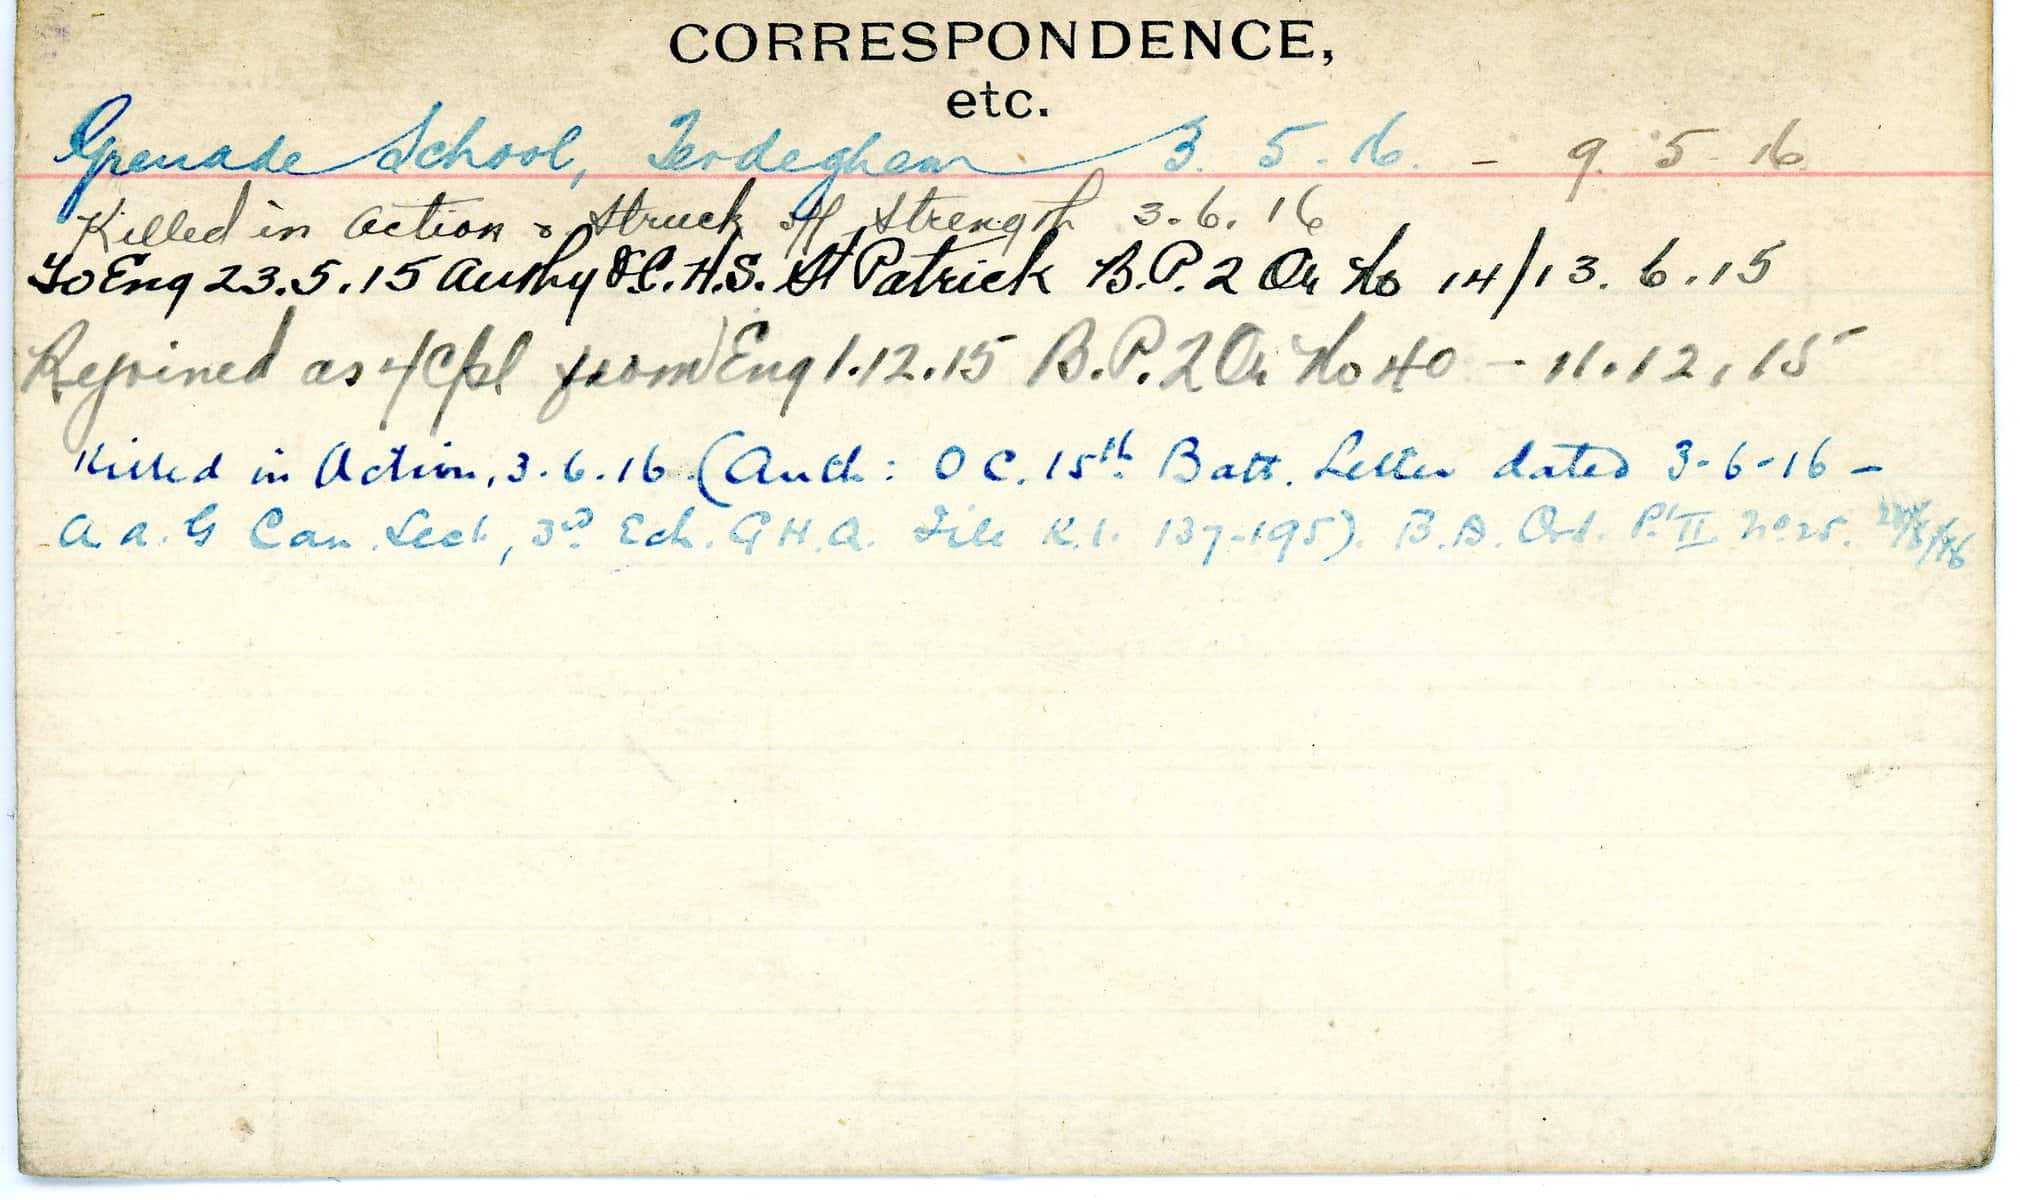 CORRESPONDENCE,
etc.
Grenade School, Terdeghem 3. 5. 16. - 9. 5 - 16
Killed in action & struck off strength 3.6.16
To Eng 23.5.15 Authy H.S. St Patrick B.P. 2 Or No 14/13.6.15
Rejoined as L/Cpl from Eng 1.12.15 B.P. 2 Or No 40 - 11.12.15
Killed in Action, 3.6.16 (Auth: O C. 15th Batt. Letter dated 3-6-16 -
A. A. G Can. Sect, 3rd Ech. G H.Q. File K.1. 137-195). B.D. Ord. Pt II No 25.